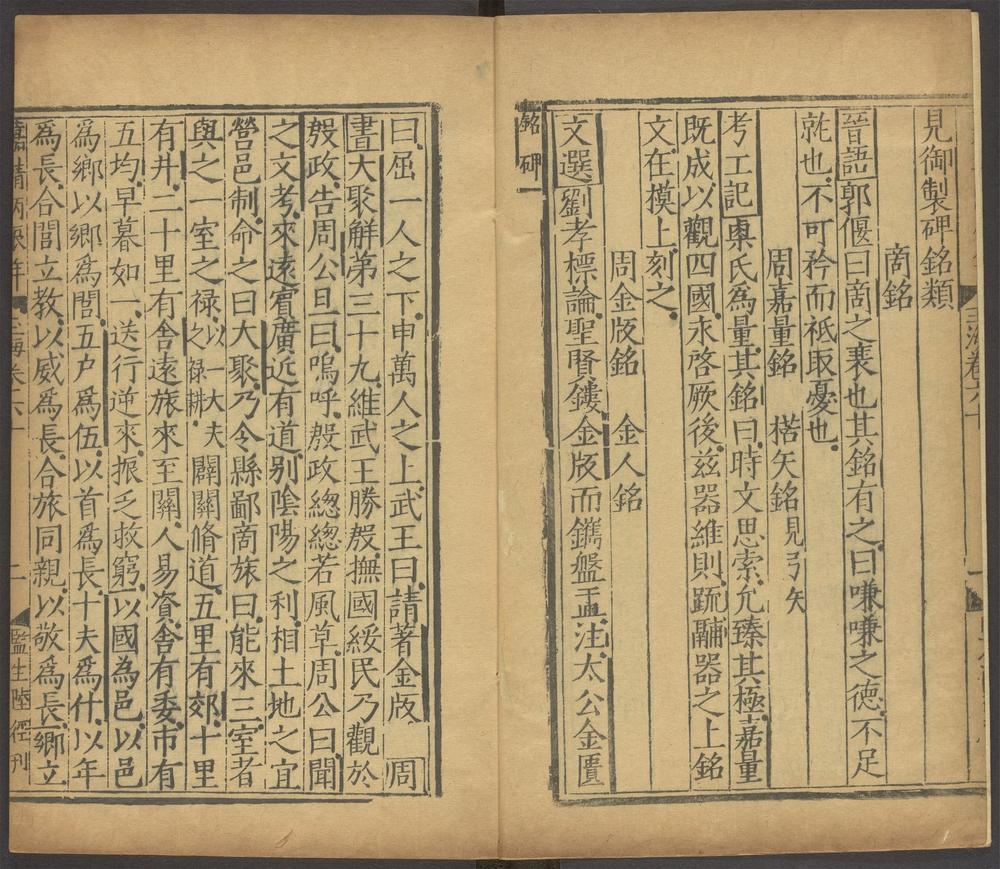 見御製碑銘類
商銘
晉語郭偃曰商之衰也其銘有之曰嗛嗛之德不足
就也不可矜而祗取憂也
周嘉量銘 楛矢銘見弓矢
考工記㮚氏為量其銘曰時文思索允臻其極嘉量
既成以觀四國永啓厥後兹器維則䟽鬴器之上銘
文在模上刻之
周金版銘 金人銘
文選劉孝標論聖賢鏤金版而鐫盤盂注太公金匱
銘碑一
曰屈一人之下申萬人之上武王曰請著金版 周
書大聚解第三十九維武王勝殷撫國綏民乃觀於
殷政告周公旦曰嗚呼殷政總總若風草周公曰聞
之文考來遠賓廣近有道别陰陽之利相土地之宜
營邑制命之曰大聚乃令縣鄙商旅曰能來三室者
與之一室之禄以一大夫之禄耕闢關脩道五里有郊十里
有井二十里有舍遠旅來至關人易資舍有委市有
五均早暮如一送行逆來振乏救窮以國為邑以邑
為鄉以鄉為閭五户為伍以首為長十夫為什以年
為長合閭立教以威為長合旅同親以敬為長鄉立
二
監生陸 刊